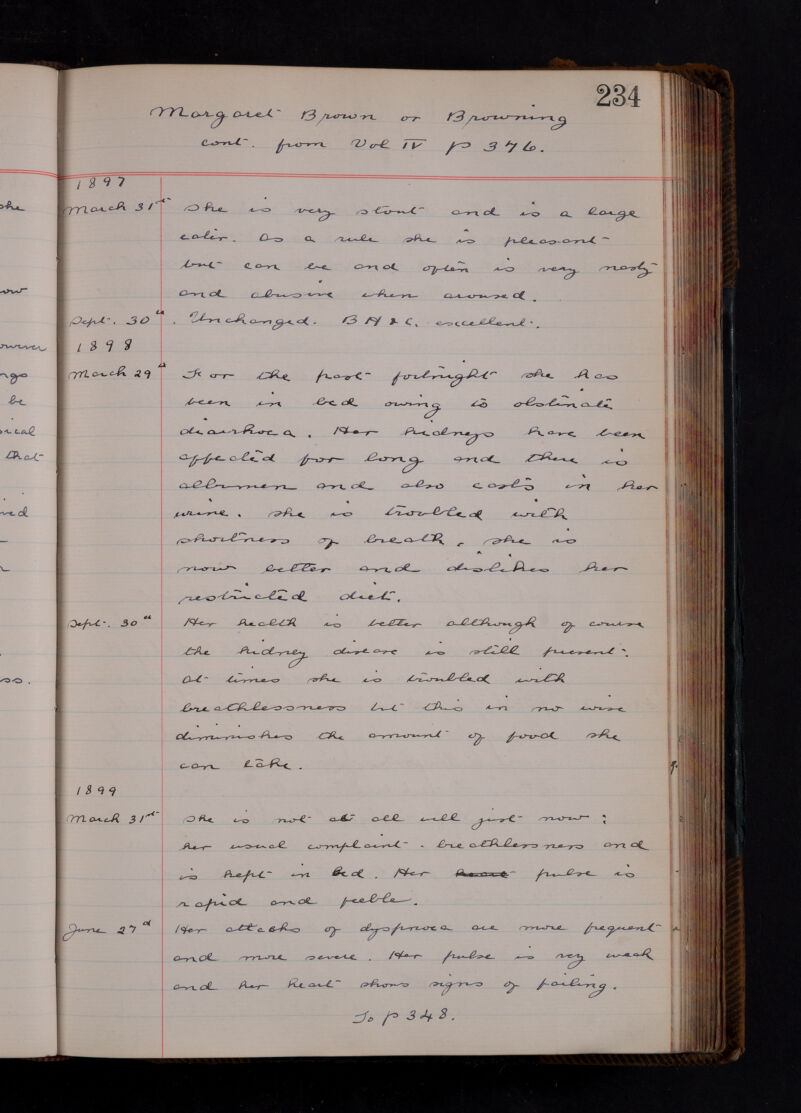 234
Margaret Brown or Browning
cont. from Vol IV p 376.
1897
March 31st She is very stout and is a large
eater. As a rule she is pleasant
but can be and often is very nasty
and abusive when aroused.
Sept. 30th. Unchanged. B H & C. excellent.
1898
March 29th For the past fortnight she has
been in bed owing to obstinate
diarrhoea. Her kidneys have been
affected for long and there is
albumen and also casts in her
urine. She is troubled with
shortness of breath, she is
now better and dislikes her
restricted diet.
Sept. 30th Her health is better although of course
the kidney disease is still present.
At times she is troubled with
breathlessness but this in no wise
diminishes the amount of food she
can take.
1899
March 31st She is not at all well just now;
her usual complaint - breathlessness and
is kept in bed. Her heart pulse is
rapid and feeble.
June 27d Her attacks of dyspnoea are more frequent
and more severe. Her pulse is very weak
and her heart shows signs of failing.
To p 348.
she
ow
be
that